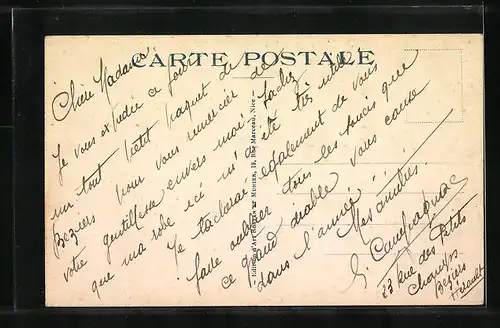 CARTE POSTALE
Chère Madame
Je vous expédie ce jour
un tout petit paquet de
Beziers pour vous remercier de
votre gentillesse envers moi. Sachez
que ma robe ici m'a été très utile
Je tacherai également de vous
faire oublier tous les soucis que
ce grand diable vous cause
dans l'année.
Mes amitiés.
S. Campagnac
23 Rue des Petits
Champs
Béziers
Hérault
Edition d'Art, 19, Rue Marceau, Nice